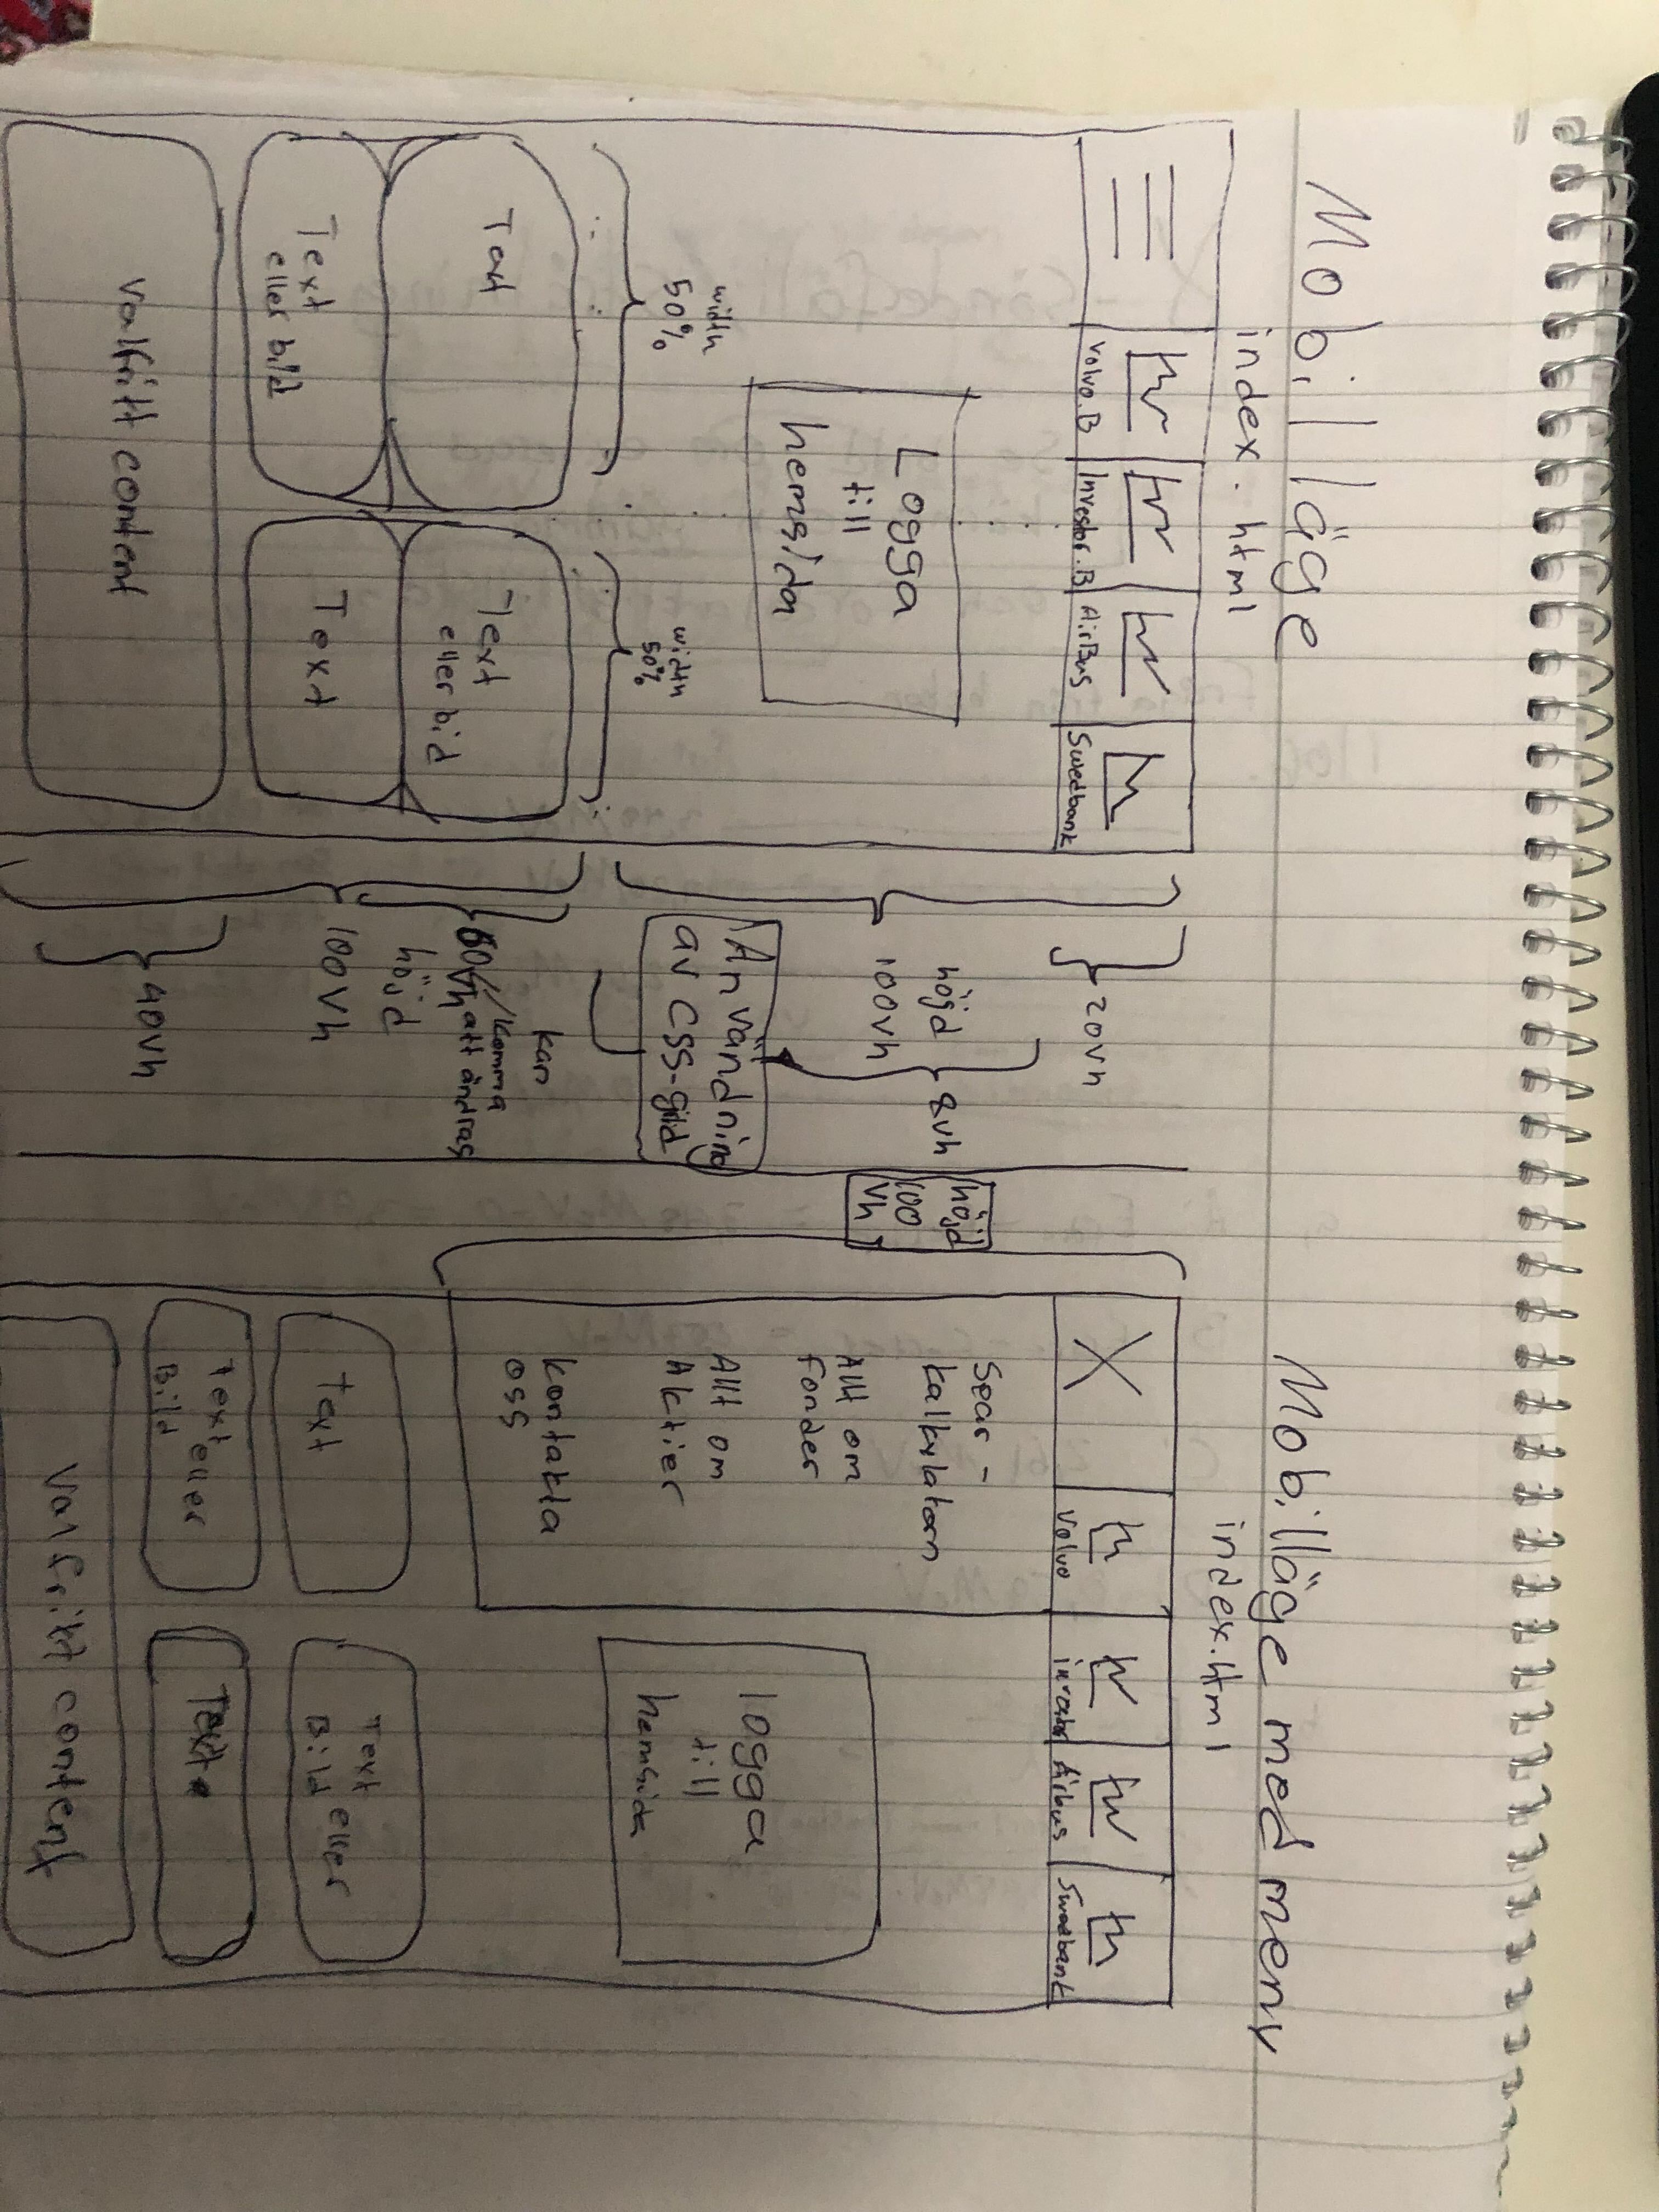 Mobil läge
index.html
Volvo.B
Investor.B
AirBus
Swedbank
Logga
till
hemsida
width
50%
width
50%
Text
Text
eller bild
Text
eller bild
Text
valfritt content
20vh
höjd
100vh
8vh
Användning
av CSS-grid
kan
60vh/komma
att ändras
höjd
100vh
40vh
Mobilläge med meny
index.html
höjd
100
vh
X
Volvo
investor
Airbus
Swedbank
Spar-
kalkylatorn
Allt om
fonder
Allt om
Aktier
kontakta
oss
logga
till
hemsida
Text
Text eller
Bild
Text eller
Bild
Text
Valfritt content